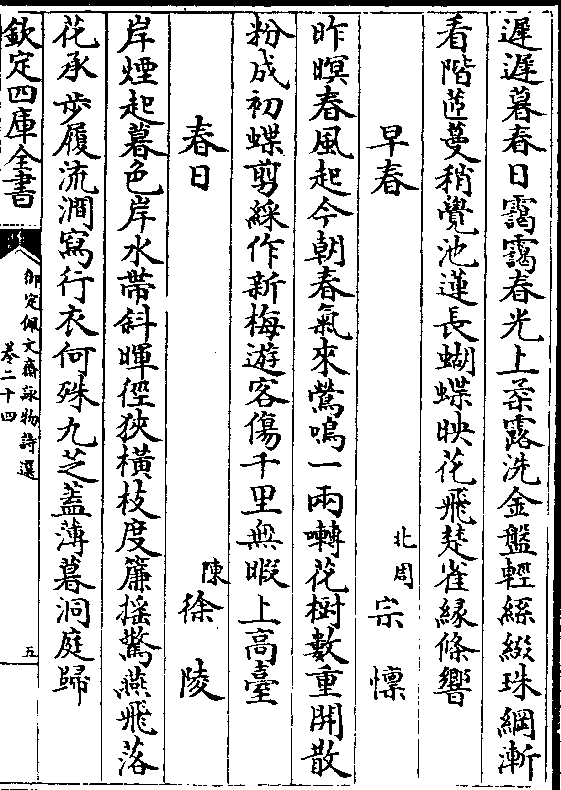 遲遲暮春日靄靄春光上柔露洗金盤輕絲綴珠網漸
看階茞蔓稍覺池蓮長蝴蝶映花飛楚雀緣條響
早春 北周 宗懔
昨暝春風起今朝春氣來鶯鳴一兩囀花樹數重開散
粉成初蝶剪綵作新梅遊客傷千里無暇上高臺
春日 陳 徐陵
岸煙起暮色岸水帶斜暉徑狹橫枝度簾搖驚燕飛落
花承步履流澗寫行衣何殊九芝蓋薄暮洞庭歸
欽定四庫全書
御定佩文齋詠物詩選
卷二十四
五